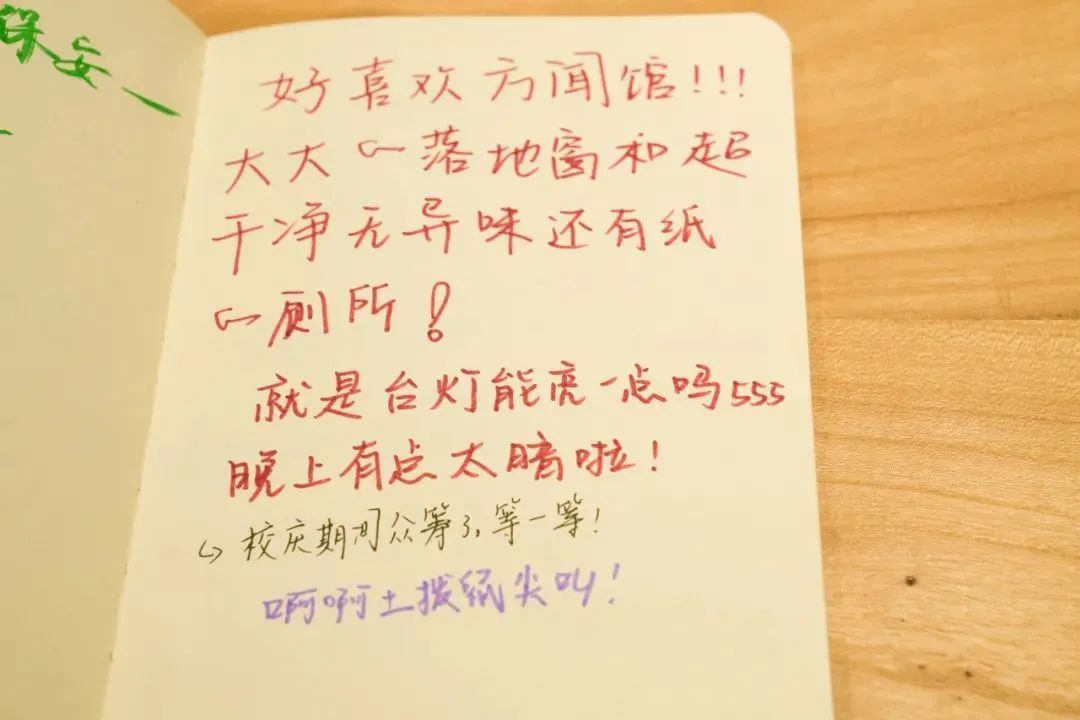 保安
好喜欢方闻馆!!!
大大の落地窗和超
干净无异味还有纸
の厕所!
就是台灯能亮一点吗555
晚上有点太暗啦!
↳校庆期间众筹了,等一等!
啊啊土拨鼠尖叫!